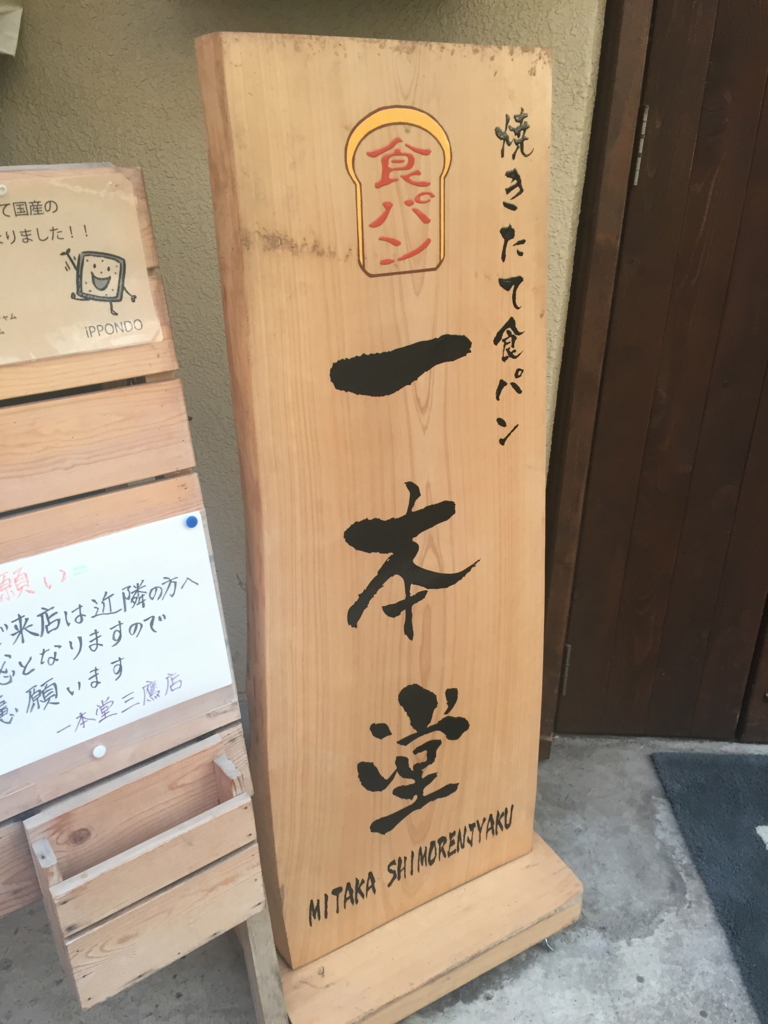 て国産の
なりました！！
iPPONDO
願い
ご来店は近隣の方へ
となりますので
願います
一本堂三鷹店
食パン
焼きたて食パン
一本堂
MITAKA SHIMORENJYAKU